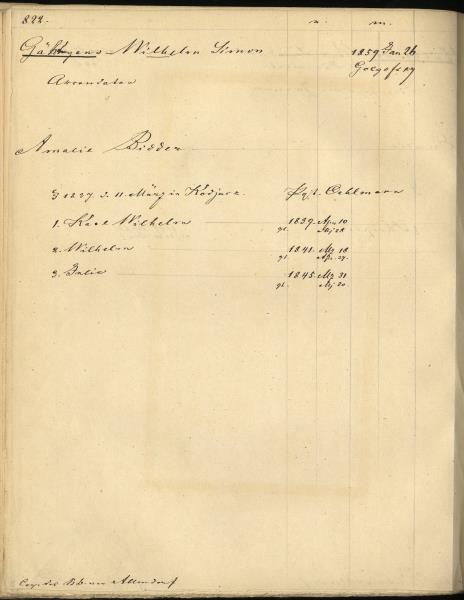 822. n. m.
Gähtgens Wilhelm Simon 1859 Jan 26
Arrendator
Amalie Bidder
1837 d. 11 März in Past. Oehlmann
1. Karl Wilhelm 1839 Apr 10
gt. 28
2. Wilhelm 1841 Mz 18
gt. Apr. 27.
3. Julie 1845 Mz 31
gt. Mj 20.